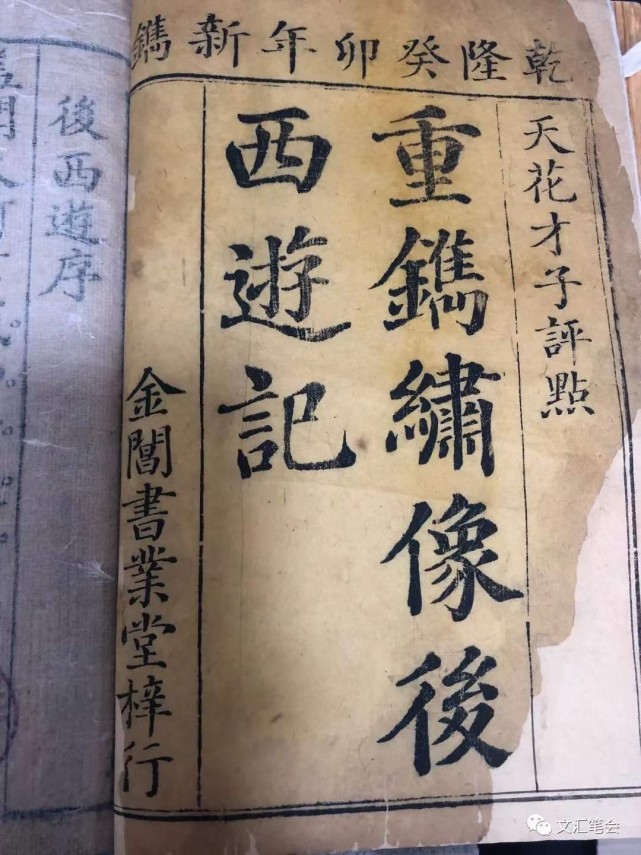 乾隆癸卯年新鐫
天花才子評點
重鐫繡像後
西遊記
金閶書業堂梓行
後西遊序
文汇笔会